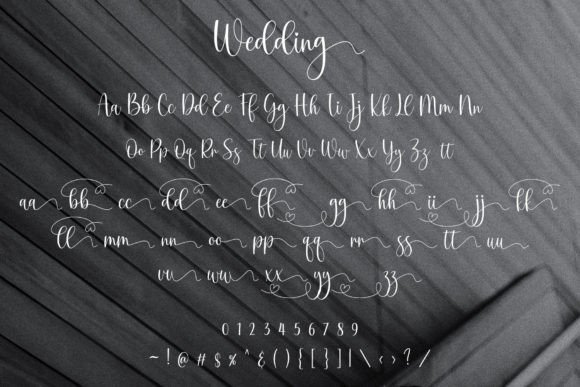 Wedding
Aa Bb Cc Dd Ee Ff Gg Hh Ii Jj Kk Ll Mm Nn
Oo Pp Qq Rr Ss Tt Uu Vv Ww Xx Yy Zz tt
aa bb cc dd ee ff gg hh ii jj kk
ll mm nn oo pp qq rr ss tt uu
vv ww xx yy zz
0 1 2 3 4 5 6 7 8 9
~ ! @ # $ % ^ & ( ) { [ } ] | \ < > ? /